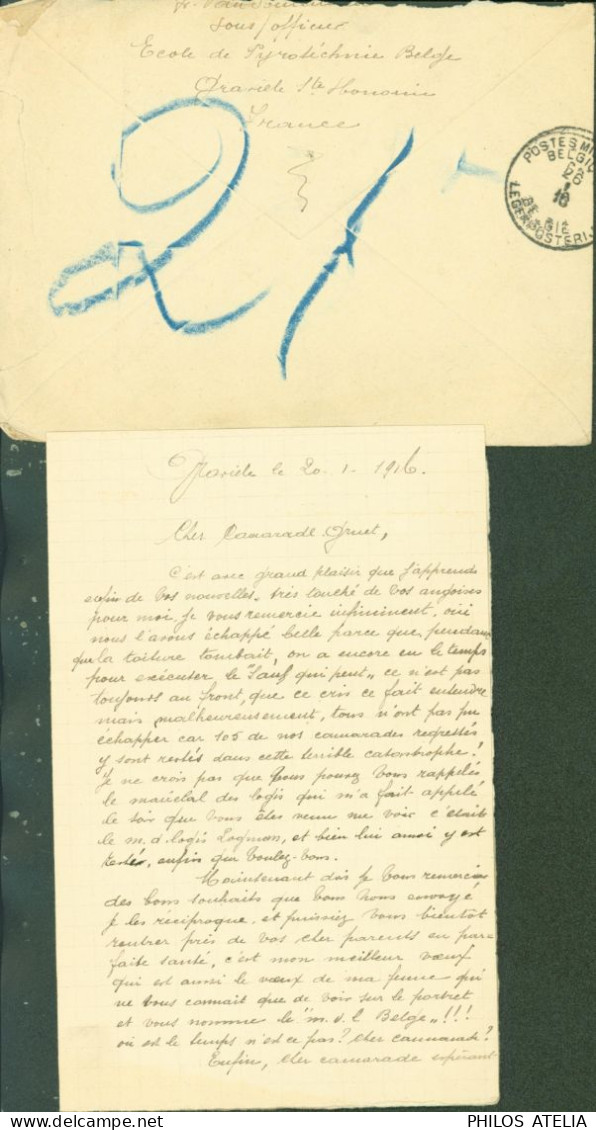 Sous/officier
Ecole de Pyrotéchnie Belge
Graviele Ste Honorin
France
21
T
POSTES MI
BELGI
26
I
16
BELGIË
LEGERPOSTERIJ
Graviele le 20-1-1916.
Cher Camarade Gruet,
C'est avec grand plaisir que j'apprends
enfin de vos nouvelles. très touché de vos angoises
pour moi. Je vous remercie infiniment, oui
nous l'avons échappé belle parce que, pendant
que la toiture tombait, on a encore eu le temps
pour exécuter le "Sauf qui peut" ce n'est pas
toujours au front, que ce cris ce fait entendre
mais malheureusement, tous n'ont pas pu
échapper car 105 de nos camarades regrettés
y sont restés dans cette terrible catastrophe!
Je ne crois pas que vous pouvez vous rappelés
le maréclal des logis qui m'a fait appelé
le soir que vous êtes venu me voir c'était
le m. d logis Logman, et bien lui aussi y est
restés, enfin que voulez-vous.
Maintenant dis je vous remercier
des bons souhaits que vous nous envoyé
je les réciproque, et puissiez vous bientôt
rentrer près de vos cher parents en par
faite santé, c'est mon meilleur vœux
qui est aussi le vœux de ma femme qui
ne vous connait que de voir sur le portret
et vous nomme le "m.d.l Belge"!!!
où est le temps n'est ce pas? cher camarade?
Enfin, cher camarade espérant
PHILOS ATELIA